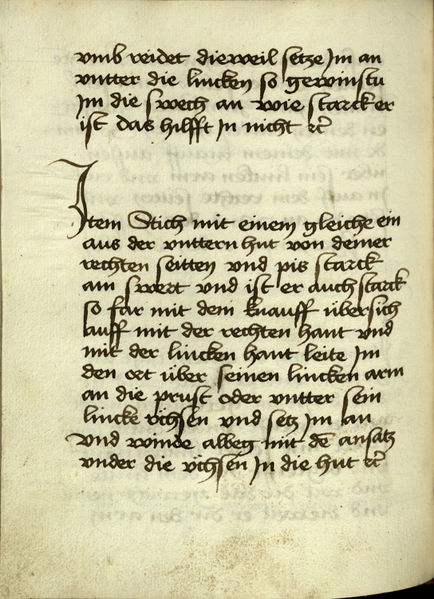 vmb reidet dieweil setze Im an
vntter die lincken so gewinstu
Im die swech an wie starck er
ist das hilfft In nicht ec̄
Item Stich mit einem gleiche ein
aus der vnttern hut von deiner
rechten seitten vnd pis starck
am swert vnd ist er auch starck
so far mit dem knauff übersich
auff mit der rechten hant vnd
mit der lincken hant leite Im
den ort über seinen lincken arm
an die prust oder vntter sein
lincke vchsen vnd setz Im an
vnd winde albeg mit dē ansatz
vnder die vchsen In die hut ec̄